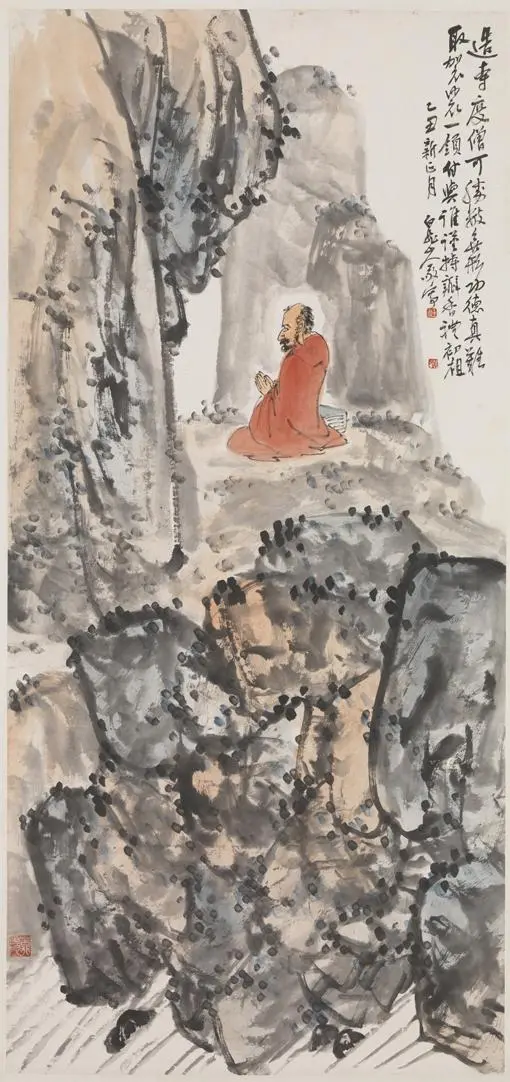 造寺度僧可勝數無形功德真難
取袈裟一領付與誰謹持瓣香禮初祖
乙丑新正月 白龍山人敬寫